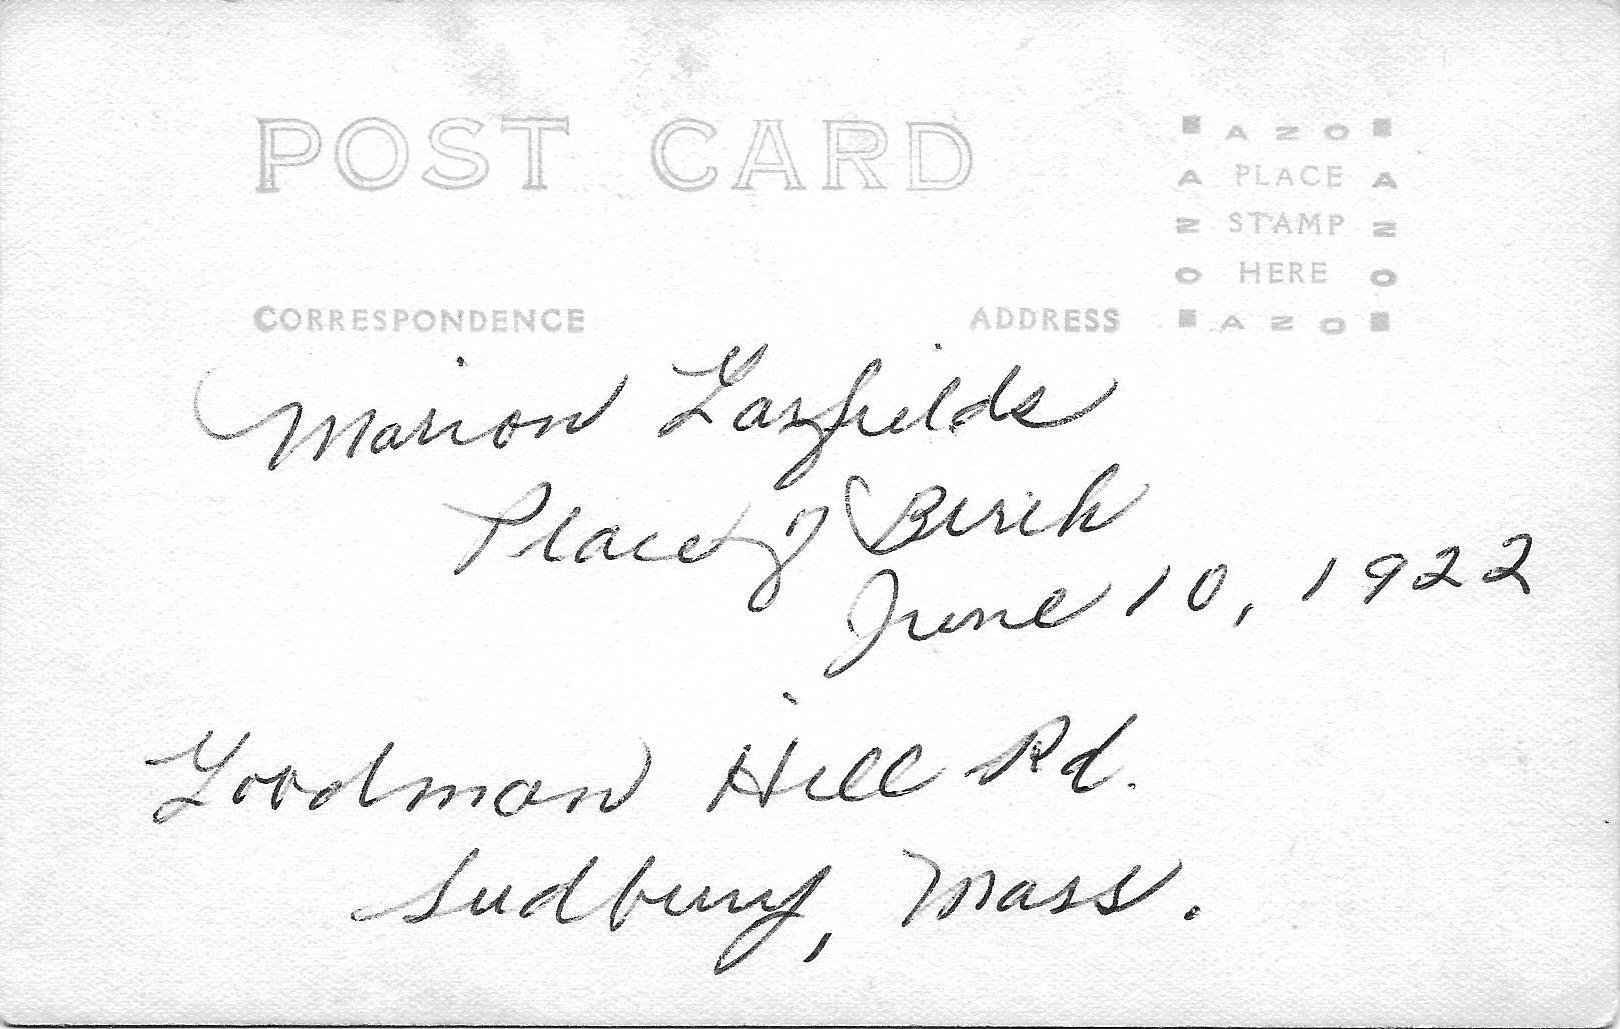 POST CARD
AZO
A PLACE A
Z STAMP Z
O HERE O
CORRESPONDENCE ADDRESS AZO
Marion Garfields
Place of Birth
June 10, 1922
Goodman Hill Rd.
Sudbury, Mass.